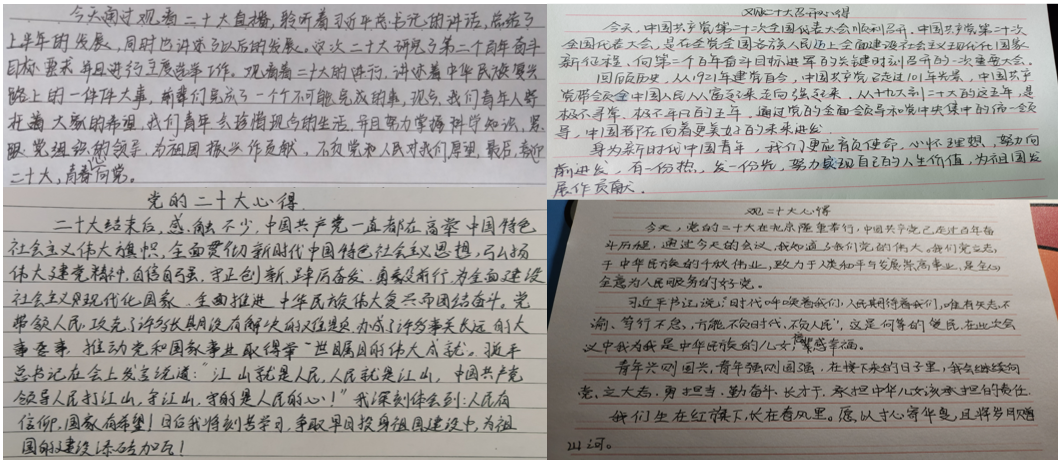 今天通过观看二十大直播，聆听着习近平总书记的讲话，总结了
上半年的发展，同时也讲述了以后的发展。这次二十大研究了第二个百年奋斗
目标要求，并且进行主席选举工作。观看着二十大的进行，讲述着中华民族复兴
路上的一件件大事，前辈们完成了一个个不可能完成的事，现今，我们青年人寄
托着大家的希望，我们青年去珍惜现今的生活，并且努力掌握科学知识，紧
跟党组织的领导，为祖国振兴作贡献，不负党和人民对我们厚望，最后，喜迎
二十大，青春心向党。
党的二十大心得
二十大结束后，感触不少，中国共产党一直都在高举中国特色
社会主义伟大旗帜，全面贯彻新时代中国特色社会主义思想，弘扬
伟大建党精神，自信自强、守正创新，踔厉奋发、勇毅前行，为全面建设
社会主义现代化国家、全面推进中华民族伟大复兴而团结奋斗。党
带领人民，攻克了许多长期没有解决的难题，办成了许多事关长远的大
事要事，推动党和国家事业取得举世瞩目的伟大成就。
总书记在会上发言说道："江山就是人民，人民就是江山，中国共产党
领导人民打江山，守江山，守的是人民的心！"我深刻体会到：人民有
信仰，国家有希望！日后我将刻苦学习，争取早日投身祖国建设中，为祖
国的建设添砖加瓦！
观二十大召开心得
今天，中国共产党第二十次全国代表大会顺利召开，中国共产党第二十次
全国代表大会，是在全党全国各族人民迈上全面建设社会主义现代化国家
新征程，向第二个百年奋斗目标进军的关键时刻召开的一次重要大会。
回顾历史，从1921年建党至今，中国共产党已走过101年光景，中国共产
党带领全中国人民从富起来走向强起来，从十九大到二十大的这五年，是
极不寻常、极不平凡的五年，通过党的全面领导和党中央集中的统一领
导，中国都在向着更美好的未来进发。
身为新时代中国青年，我们更应肩负使命，心怀理想，努力向
前进发，有一份热，发一份光，努力实现自己的人生价值，为祖国发
展作贡献。
观二十大心得
今天，党的二十大在北京隆重举行，中国共产党已走过百年奋
斗历程，通过今天的会议，我知道了我们党的伟大，我们党立志
于中华民族的千秋伟业，致力于人类和平与发展崇高事业，是全心
全意为人民服务的好党。
习近平书记说："时代呼唤着我们，人民期待着我们，唯有矢志不
渝、笃行不怠，方能不负时代、不负人民"，这是何等的，在此次会
议中我为我是中华民族的儿女，感幸福。
青年兴则国兴，青年强则国强，在接下来的日子里，我要继续向
党，立大志，勇担当，勤奋斗，长才干，承担中华儿女该承担的责任
我们生在红旗下，长在春风里。愿以寸心寄华夏，且将岁月赠
山河。